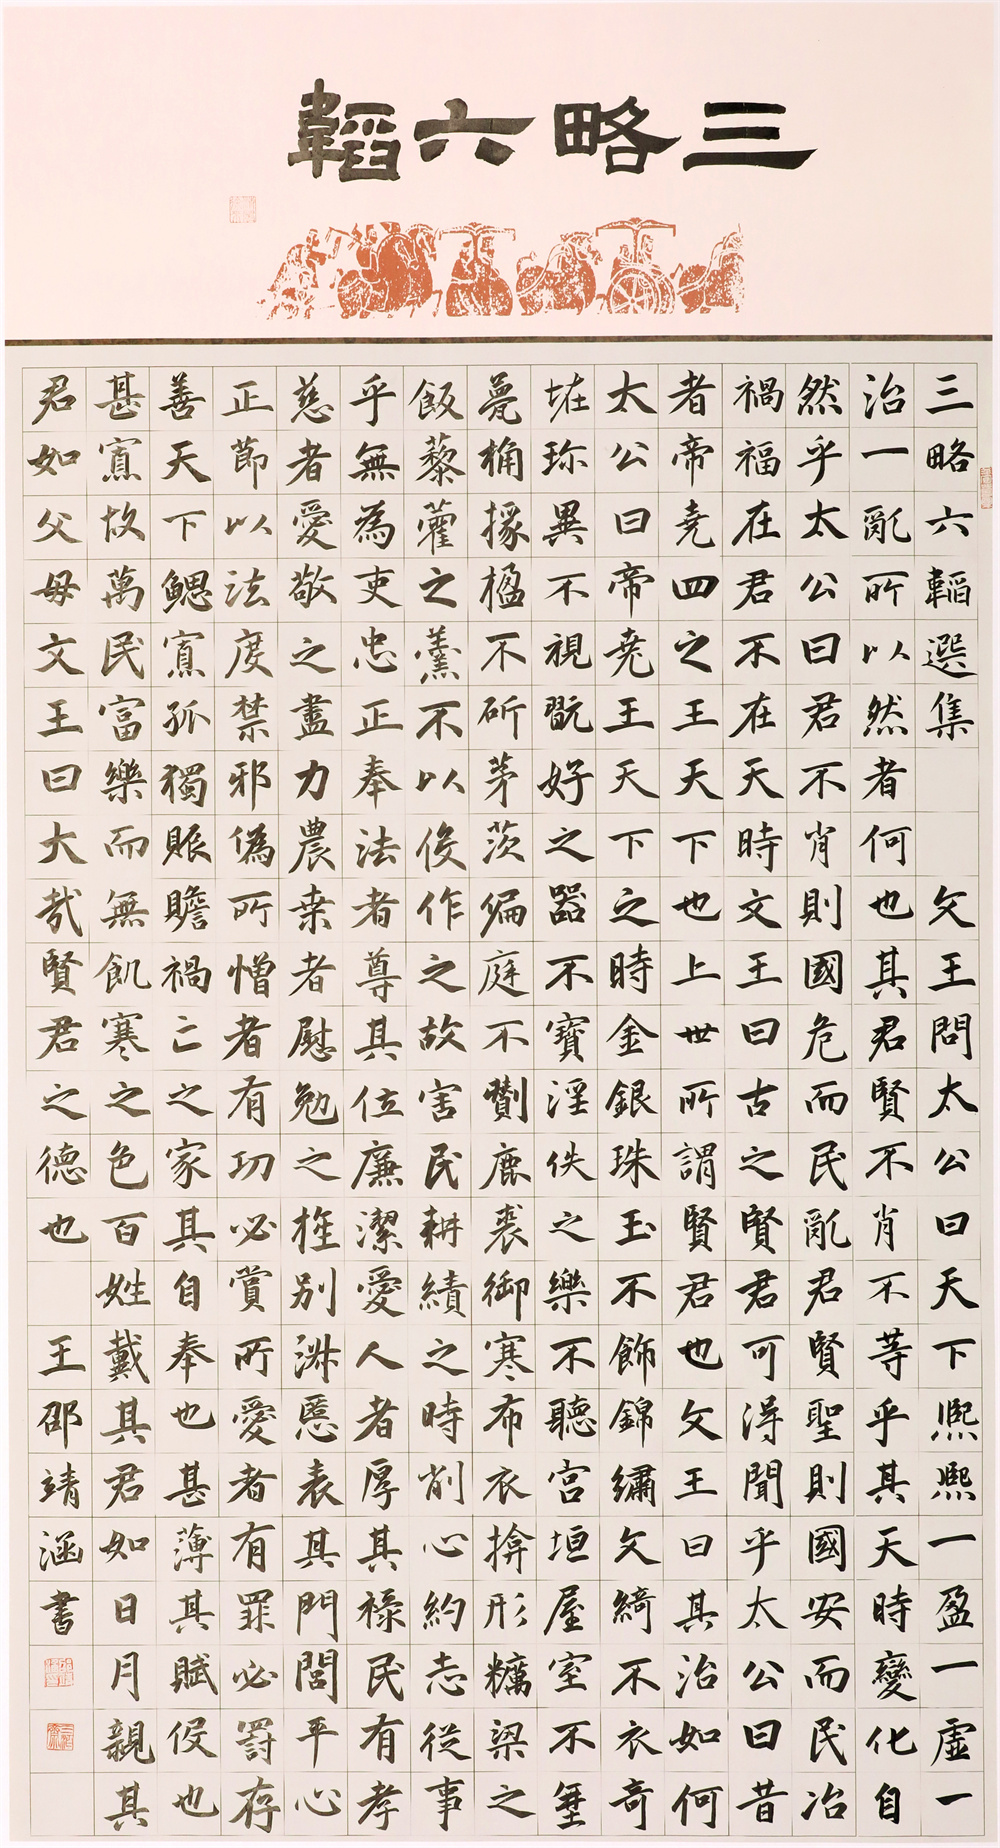 三略六韜
三略六韜選集 文王問太公曰天下熙熙一盈一虛一
治一亂所以然者何也其君賢不肖不等乎其天時變化自
然乎太公曰君不肖則國危而民亂君賢聖則國安而民治
禍福在君不在天時文王曰古之賢君可得聞乎太公曰昔
者帝堯四之王天下也上世所謂賢君也文王曰其治如何
太公曰帝堯王天下之時金銀珠玉不飾錦繡文綺不衣奇
恠珍異不視翫好之器不寶淫佚之樂不聽宮垣屋室不堊
甍桷椽楹不斫茅茨徧庭不剪鹿裘御寒布衣揜形糲粱之
飯藜藿之羹不以役作之故害民耕績之時削心約志從事
乎無為吏忠正奉法者尊其位廉潔愛人者厚其祿民有孝
慈者愛敬之盡力農桑者慰勉之旌別淑慝表其門閭平心
正節以法度禁邪偽所憎者有功必賞所愛者有罪必罰存
善天下鰥寡孤獨賑贍禍亡之家其自奉也甚薄其賦役也
甚寡故萬民富樂而無飢寒之色百姓戴其君如日月親其
君如父母文王曰大哉賢君之德也 王邵靖涵書